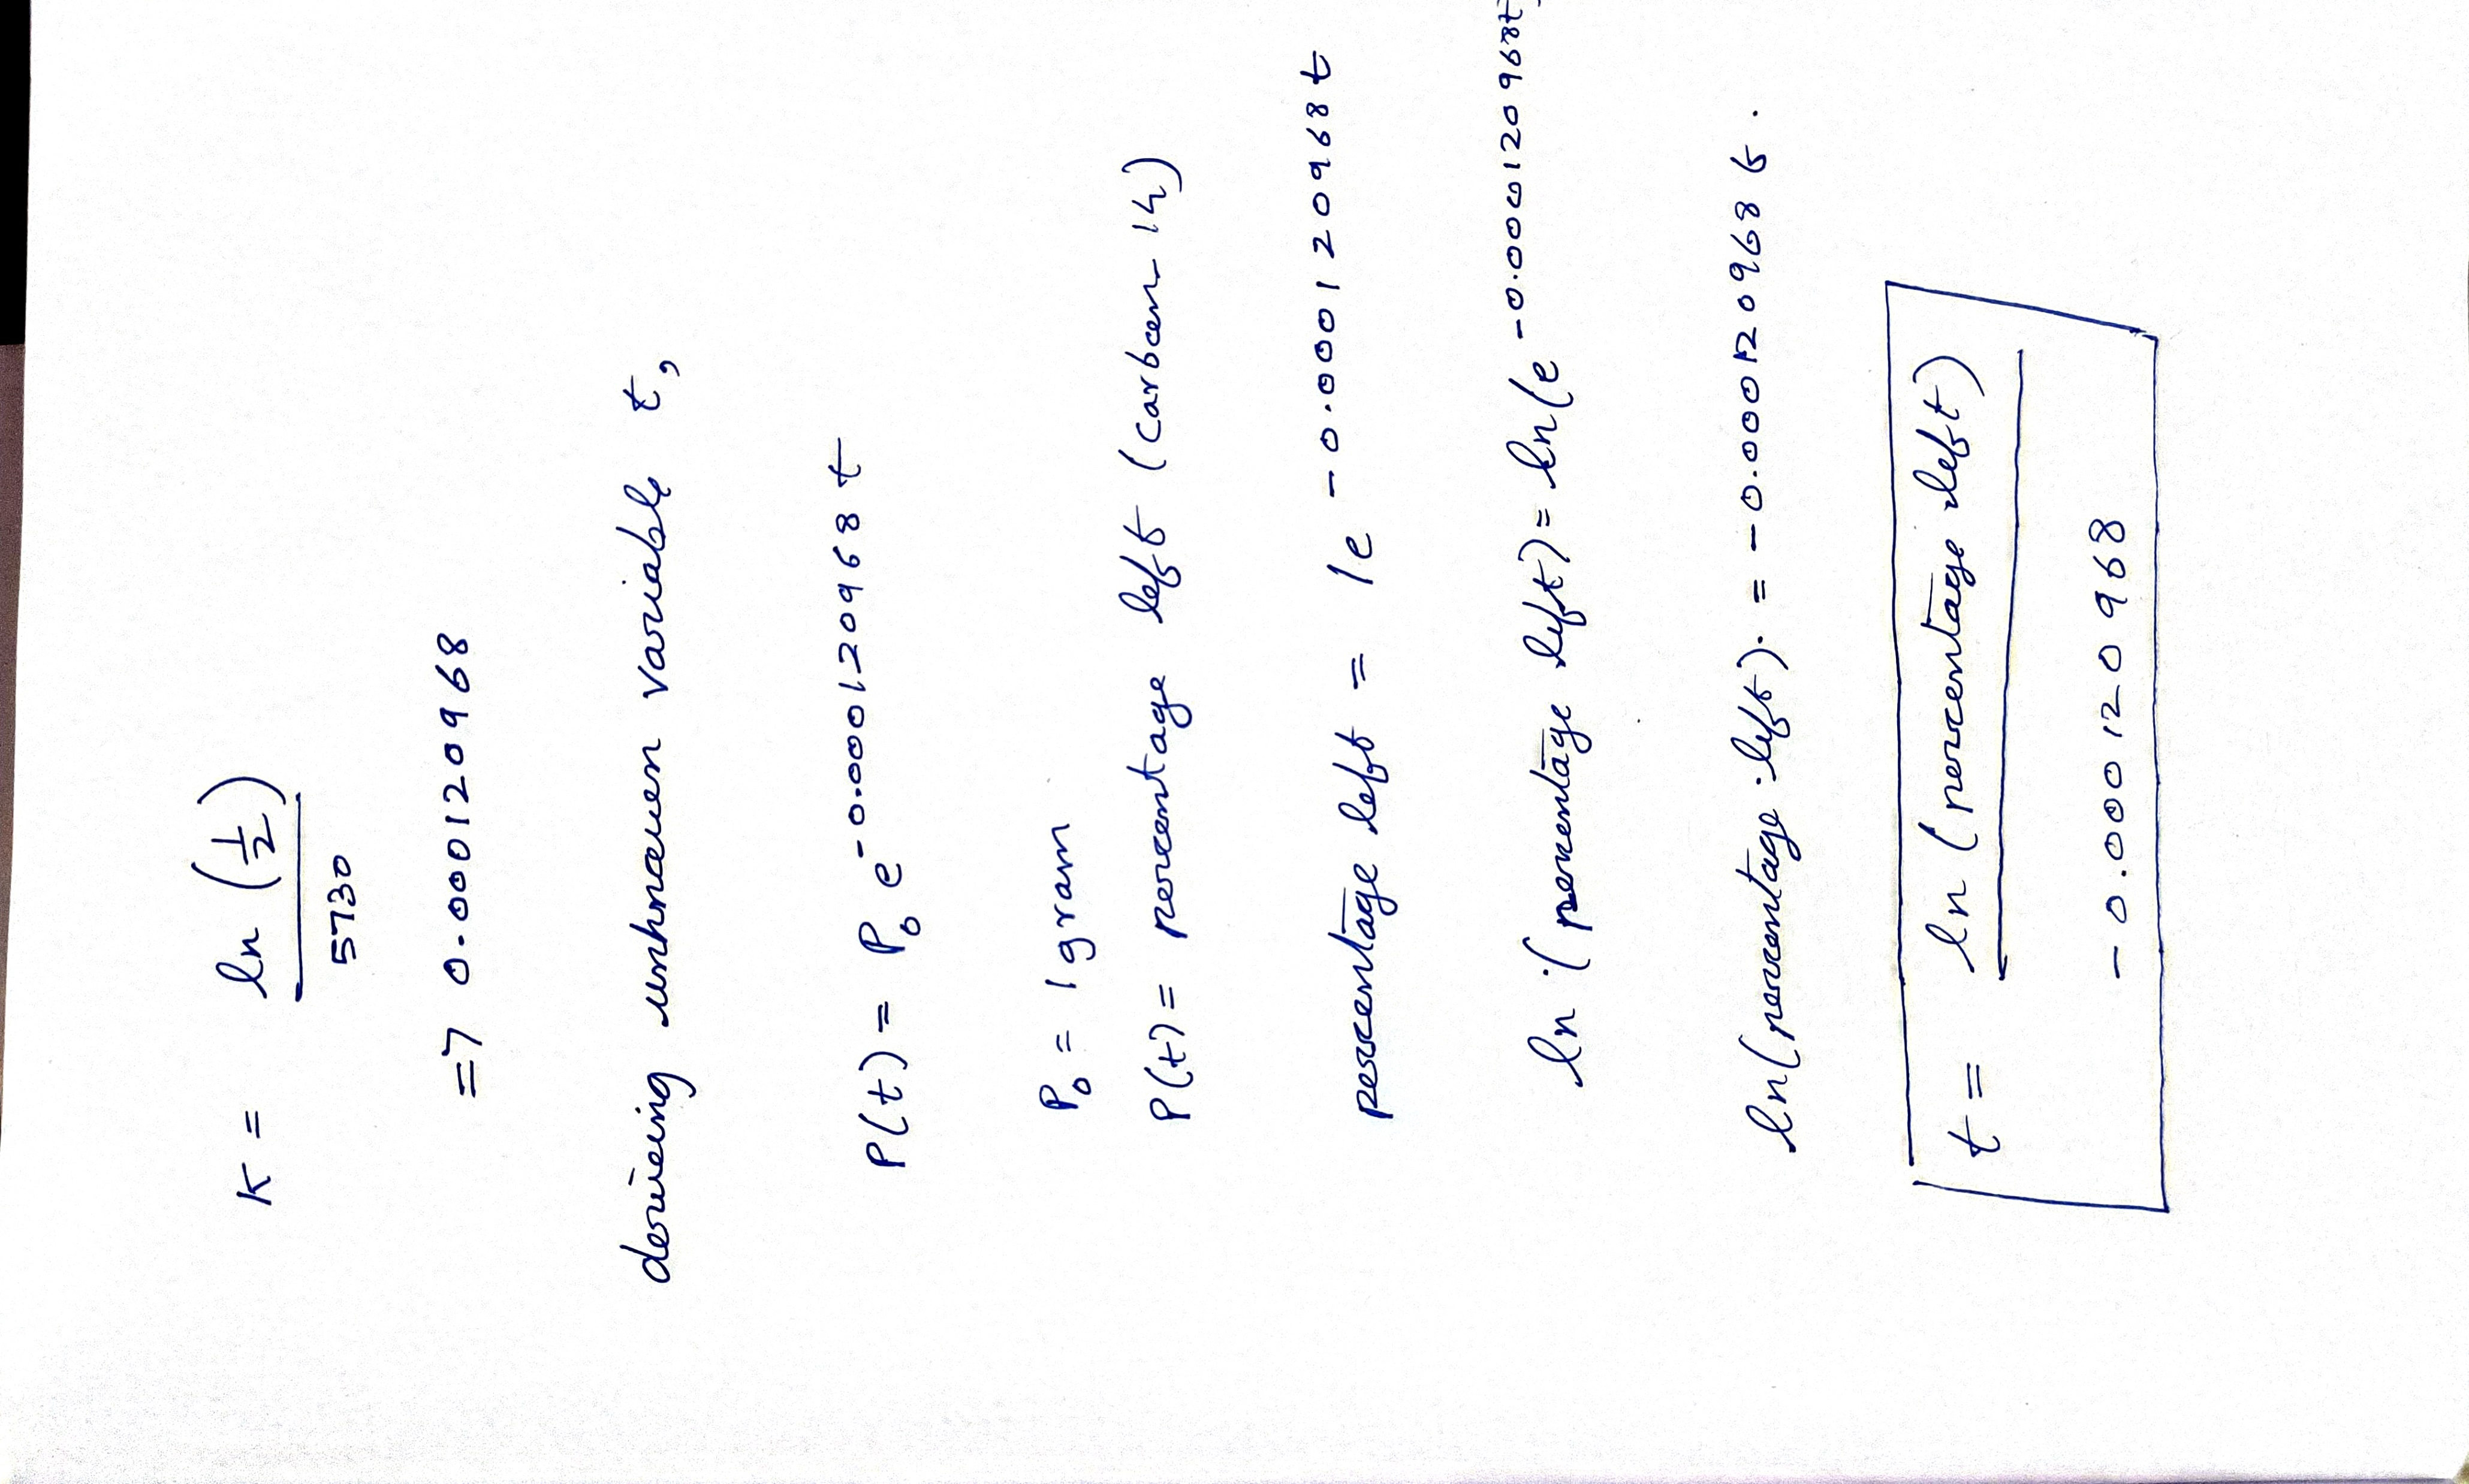 K = ln (1/2) / 5730
=> 0.000120968
deriveing unknowen variable t,
P(t) = P₀ e^-0.000120968 t
P₀ = 1 gram
P(t) = percentage left (carbon-14)
percentage left = 1e^-0.000120968 t
ln (percentage left) = ln(e^-0.000120968t)
ln(percentage left). = -0.000120968 t.
t = ln (percentage left) / -0.000120968